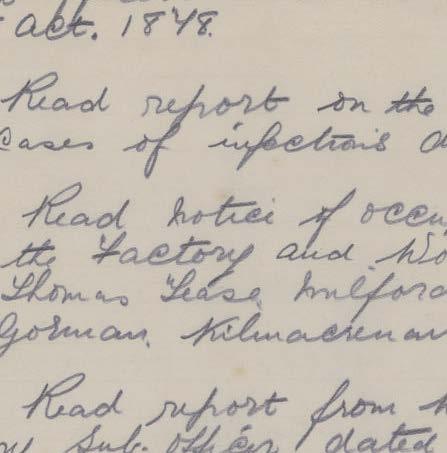 act. 1878.
Read report on the
Cases of infectious d
Read Notice of occu
the Factory and Wo
Thomas Lease, Milford
Gorman, Kilmacrenan
Read report from
Sub. Officer dated